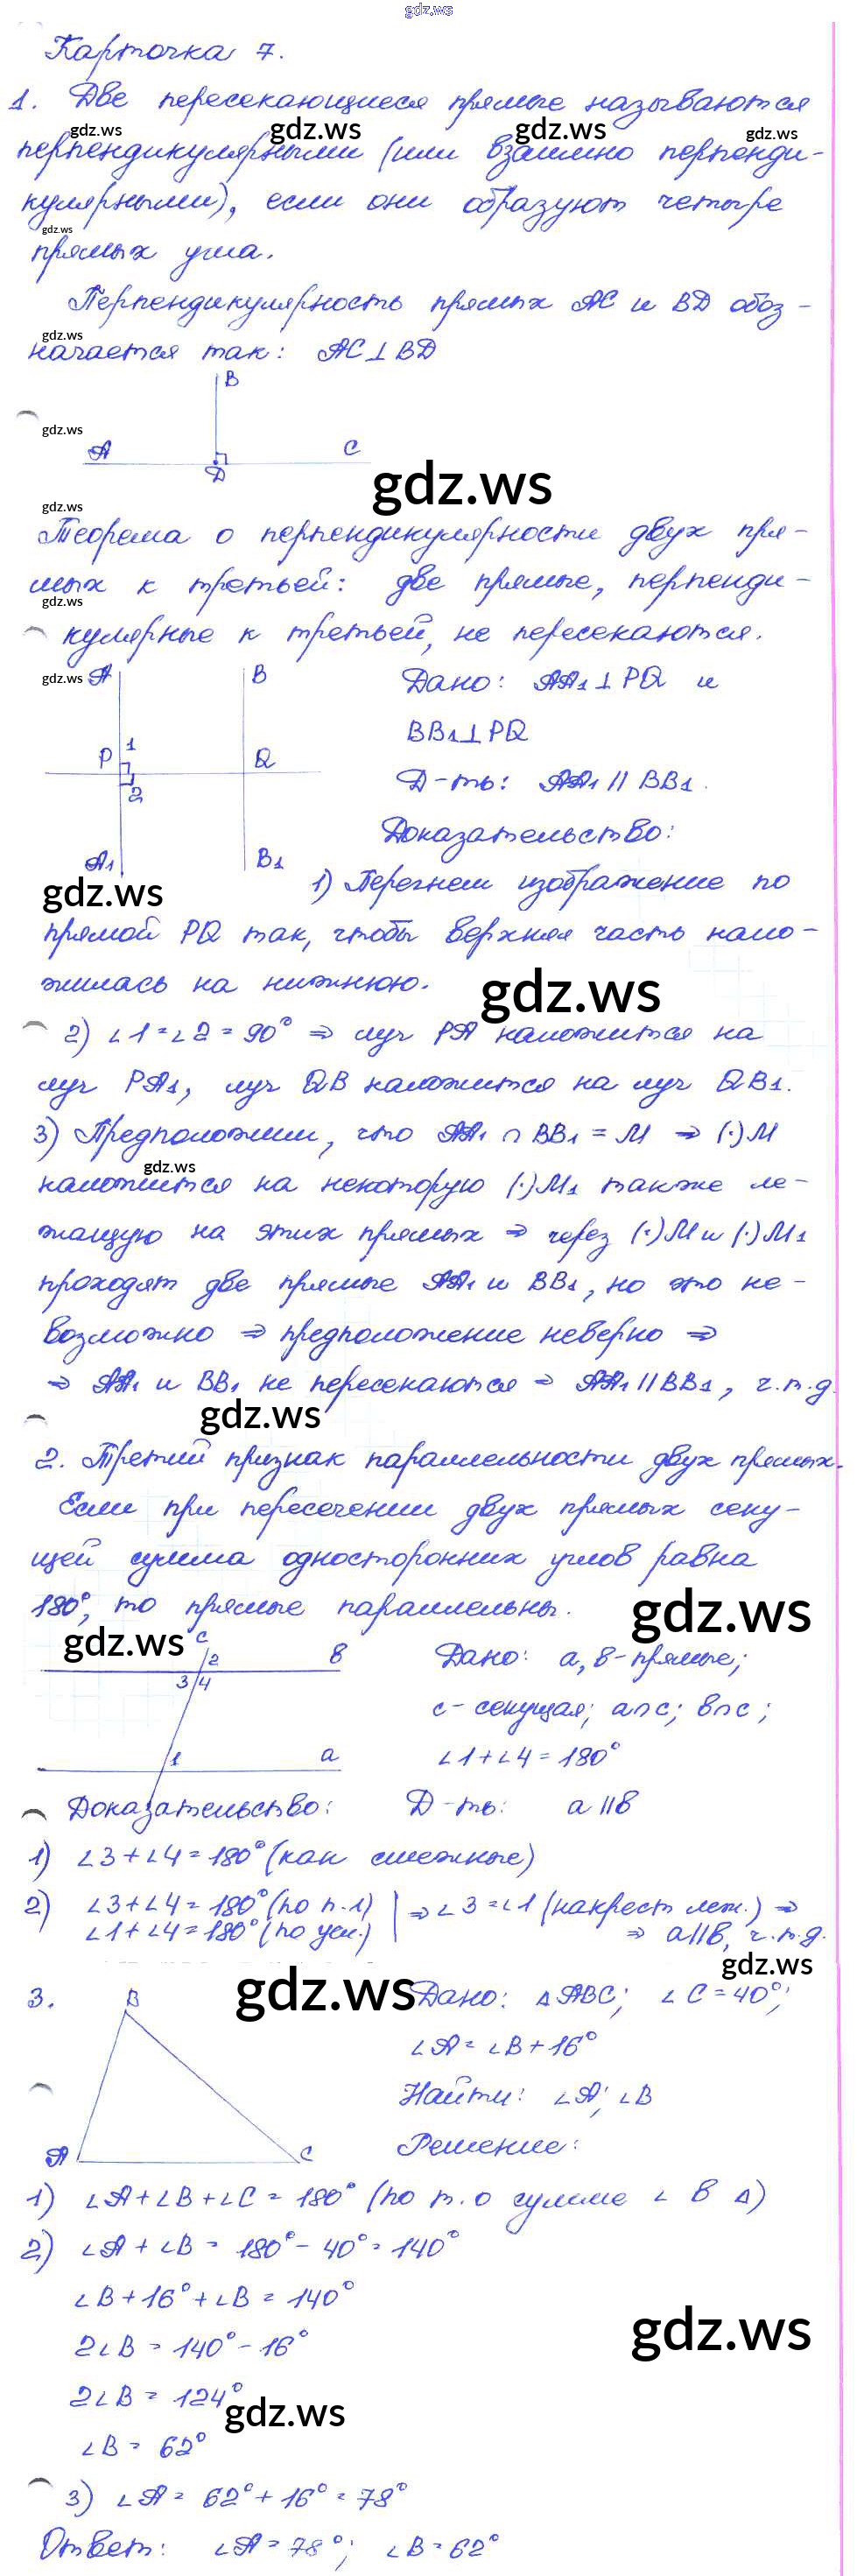 gdz.ws
Карточка 7.
1. Две пересекающиеся прямые называются
gdz.ws gdz.ws gdz.ws gdz.ws
перпендикулярными (или взаимно перпенди-
кулярными), если они образуют четыре
gdz.ws
прямых угла.
Перпендикулярность прямых AC и BD обоз-
gdz.ws
начается так: AC⊥BD
B
gdz.ws
A C
D
gdz.ws
gdz.ws
Теорема о перпендикулярности двух пря-
мых к третьей: две прямые, перпенди-
gdz.ws
кулярные к третьей, не пересекаются.
gdz.ws A B
Дано: AA1⊥PQ и
BB1⊥PQ
P 1 Q
2
Д-ть: AA1 || BB1.
Доказательство:
A1 B1
gdz.ws
1) Перегнем изображение по
прямой PQ так, чтобы верхняя часть нало-
жилась на нижнюю.
gdz.ws
2) ∠1=∠2=90° ⇒ луч PA наложится на
луч PA1, луч QB наложится на луч QB1.
3) Предположим, что AA1 ∩ BB1 = M ⇒ (·)M
gdz.ws
наложится на некоторую (·)M1 также ле-
жащую на этих прямых ⇒ через (·)M и (·)M1
проходят две прямые AA1 и BB1, но это не-
возможно ⇒ предположение неверно ⇒
⇒ AA1 и BB1 не пересекаются ⇒ AA1 || BB1, ч.т.д.
gdz.ws
2. Третий признак параллельности двух прямых.
Если при пересечении двух прямых секу-
щей сумма односторонних углов равна
180°, то прямые параллельны.
gdz.ws
gdz.ws
c 2 в
3 4
1 a
Дано: a, в - прямые;
c - секущая; a∩c; в∩c;
∠1+∠4=180°
Доказательство: Д-ть: a || в
1) ∠3+∠4=180° (как смежные)
2) ∠3+∠4=180° (по п.1) | ⇒ ∠3=∠1 (накрест леж.) ⇒
∠1+∠4=180° (по усл.) | ⇒ a || в, ч.т.д.
gdz.ws
gdz.ws
3. B Дано: △ABC; ∠C=40°;
∠A=∠B+16°
Найти: ∠A; ∠B
A C Решение:
1) ∠A+∠B+∠C=180° (по т. о сумме ∠ в △)
2) ∠A+∠B=180°-40°=140°
∠B+16°+∠B=140°
gdz.ws
2∠B=140°-16°
2∠B=124°
gdz.ws
∠B=62°
3) ∠A=62°+16°=78°
Ответ: ∠A=78°; ∠B=62°